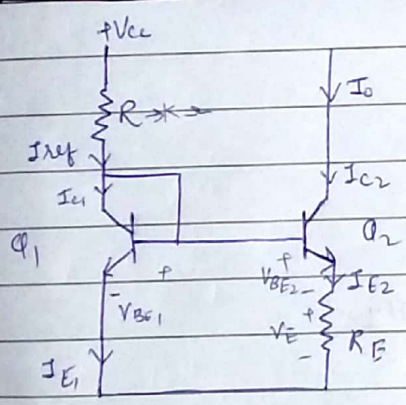 +Vcc
R
I₀
Iref
Ic₁
Ic₂
Q₁
Q₂
+
-
VBE₁
+
VBE₂ -
IE₂
+
VE
-
RE
IE₁